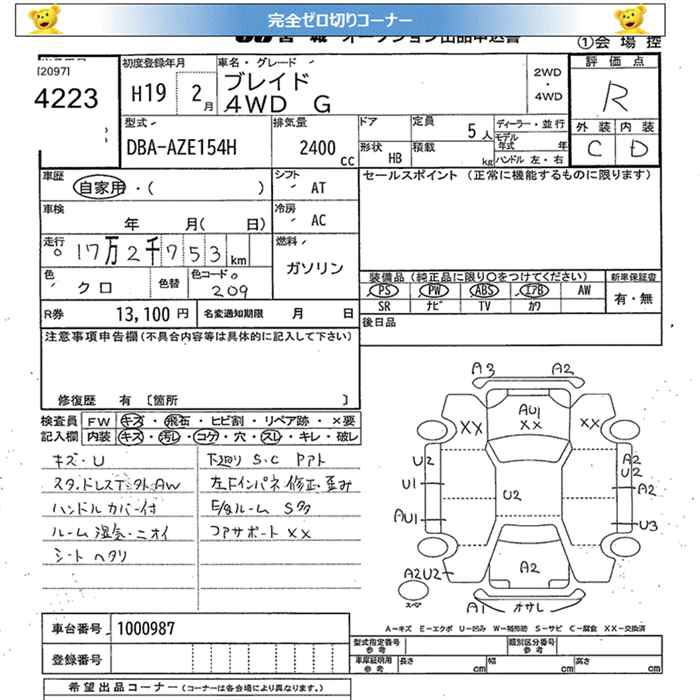 完全ゼロ切りコーナー
オークション出品申込書
①会場控
[2097]
4223
初度登録年月
H19 2月
車名・グレード
ブレイド
4WD G
2WD
・
4WD
評価点
R
外装 内装
C D
型式
DBA-AZE154H
排気量
2400 cc
ドア
形状 HB
定員 5人
積載 kg
ディーラー・並行
モデル年式 年
ハンドル 左・右
車歴
自家用・( )
シフト AT
セールスポイント (正常に機能するものに限ります)
車検
年 月( 日)
冷房 AC
走行
17万2千753km
燃料
ガソリン
色
クロ
色替
色コード
209
装備品(純正品に限り○をつけてください)
新車保証書
PS PW ABS エアB AW
SR ナビ TV カワ
有・無
R券 13,100円
名変通知期限 月 日
後日品
注意事項申告欄(不具合内容等は具体的に記入して下さい)
修復歴 有 〔箇所 〕
検査員記入欄
FW キズ・飛石・ヒビ割・リペア跡・×要
内装 キズ・汚レ・コゲ・穴・スレ・キレ・破レ
キズ・U
スタッドレスT・外AW
ハンドルカバー付
ルーム湿気・ニオイ
シートヘタリ
下廻りS・C アト
左Fインパネ修正・歪み
E/gルーム S多
コアサポートXX
A3 A2
XX
AU1
XX
XX
U2
U1
AU1
U2
A2
U2
A2
U3
A2U2
スペア
A2
A1 オサレ
A-キズ E-エクボ U-凹み W-補修跡 S-サビ C-腐食 XX-交換済
車台番号 1000987
登録番号
型式指定番号 参考
類別区分番号 参考
車庫証明用 参考
長さ cm
幅 cm
高さ cm
希望出品コーナー (コーナーは各会場により異なります。)